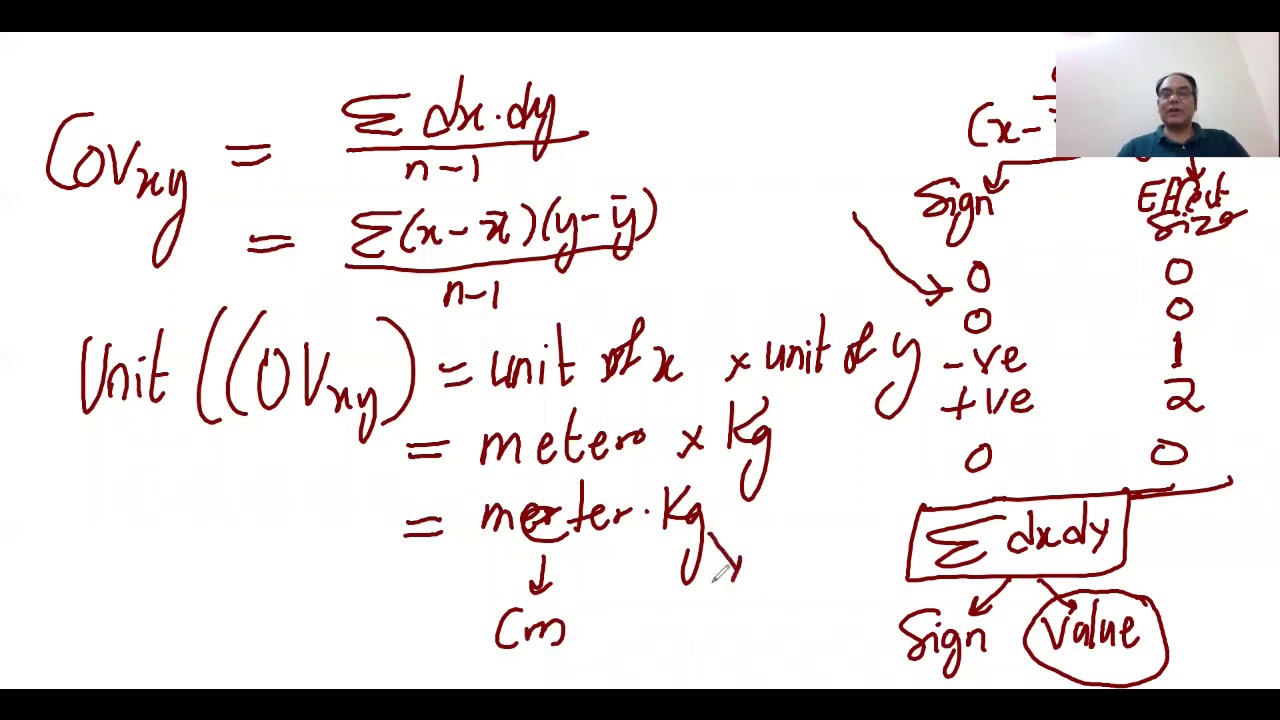 Covxy = Σ dx.dy / n-1
= Σ(x-x̄)(y-ȳ) / n-1
Unit (Covxy) = unit of x × unit of y
= meter × Kg
= meter.Kg
Cm
(x-
Sign Effect Size
0 0
0 0
-ve 1
+ve 2
0 0
Σ dxdy
Sign Value